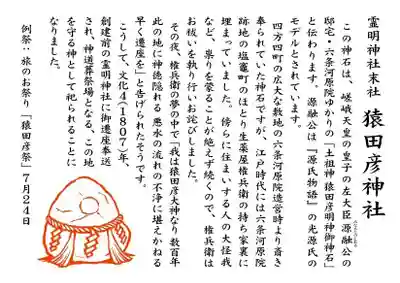 霊明神社末社 猿田彦神社
この神石は、嵯峨天皇の皇子の左大臣源融公の
みなもとのとおる
邸宅・六条河原院ゆかりの「土祖神 猿田彦明神御神石」
と伝わります。源融公は『源氏物語』の光源氏の
モデルとされています。
四方四町の広大な敷地の六条河原院造営時より斎き
奉られていた神石ですが、江戸時代には六条河原院
跡地の塩竈町のほとり生薬屋権兵衛の持ち家裏に
埋まっていました。傍らに住まいする人の大怪我
など、祟りを蒙ることが絶えず続くので、権兵衛は
お祓いを執り行いお詫びしました。
その夜、権兵衛の夢の中で「我は猿田彦大神なり 数百年
此の地に神徳隠れる 悪水の流れの不浄に堪えかねる
早く遷座を」と告げられたそうです。
こうして、文化4(1807)年、
創建前の霊明神社に御遷座奉送
され、神道葬祭場となる、この地
を守る神として祀られることに
なりました。
例祭：旅のお祭り「猿田彦祭」7月24日